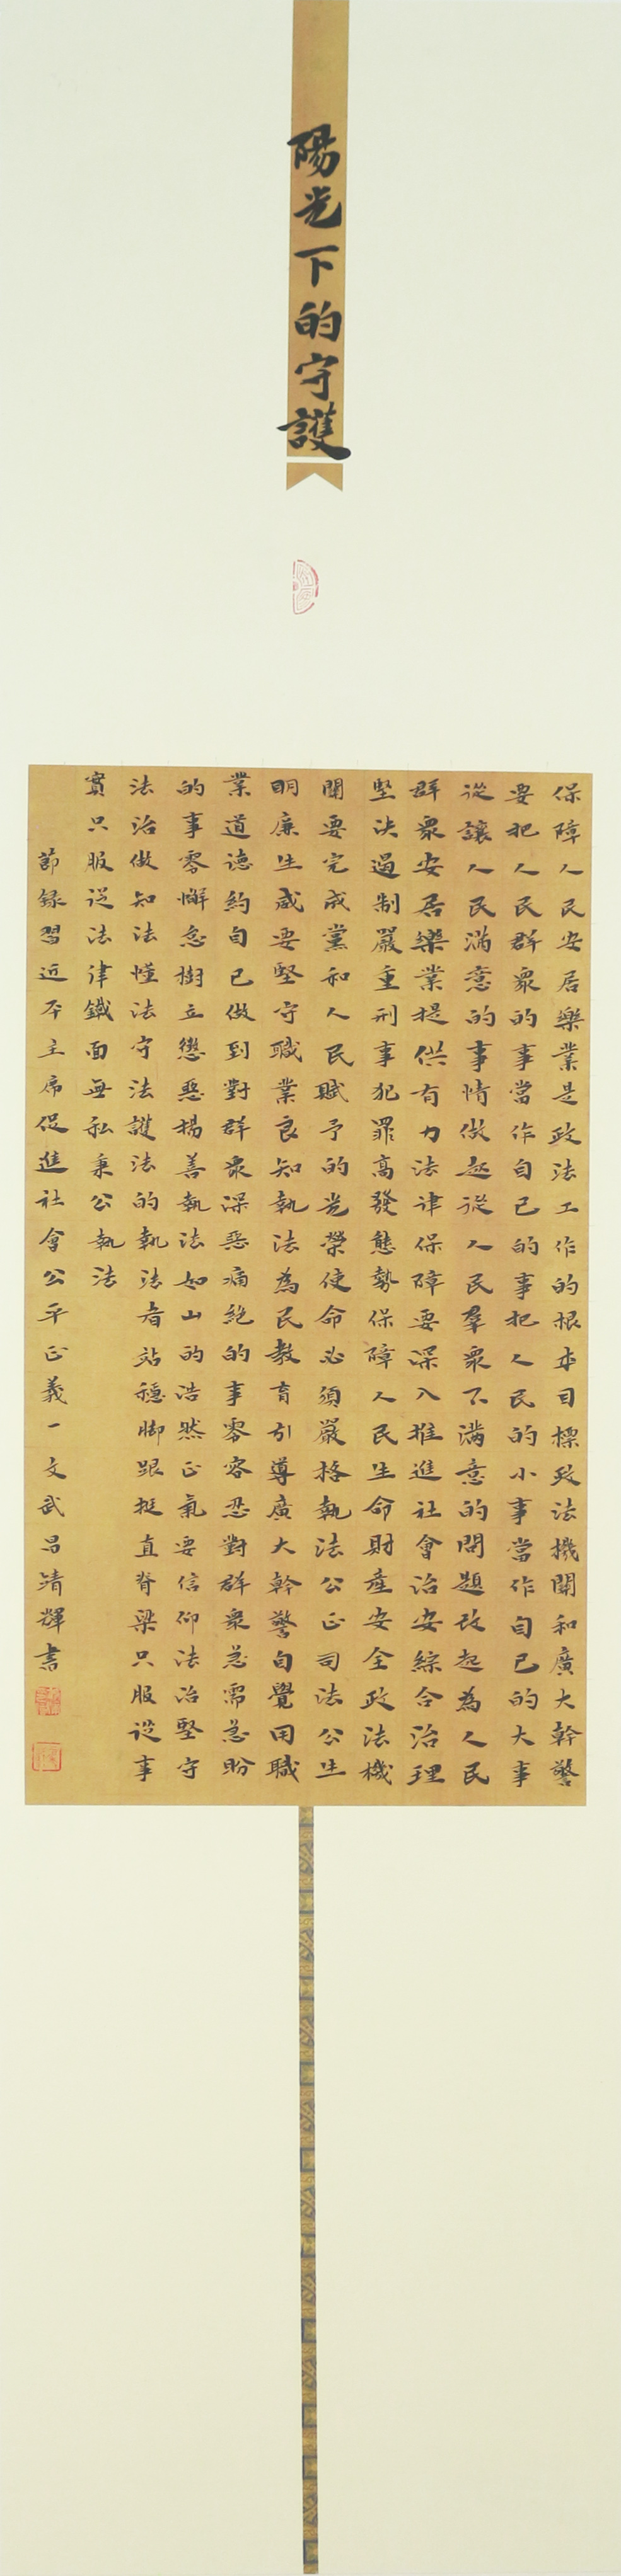 陽光下的守護
保障人民安居樂業是政法工作的根本目標政法機關和廣大幹警
要把人民群衆的事當作自己的事把人民的小事當作自己的大事
從讓人民滿意的事情做起從人民羣衆不滿意的問題改起為人民
群衆安居樂業提供有力法律保障要深入推進社會治安綜合治理
堅決遏制嚴重刑事犯罪高發態勢保障人民生命財產安全政法機
關要完成黨和人民賦予的光榮使命必須嚴格執法公正司法公生
明廉生威要堅守職業良知執法為民教育引導廣大幹警自覺用職
業道德約自己做到對群衆深惡痛絶的事零容忍對群衆急需急盼
的事零懈怠樹立懲惡揚善執法如山的浩然正氣要信仰法治堅守
法治做知法懂法守法護法的執法者站穩脚跟挺直脊梁只服從事
實只服從法律鐵面無私秉公執法
節録習近平主席促進社會公平正義一文武吕靖輝書